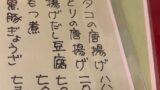 タコの唐揚げ 八八
とりの唐揚げ 七八
揚げだし豆腐 七
もつ煮 七
黒豚ぎょうざ 七三